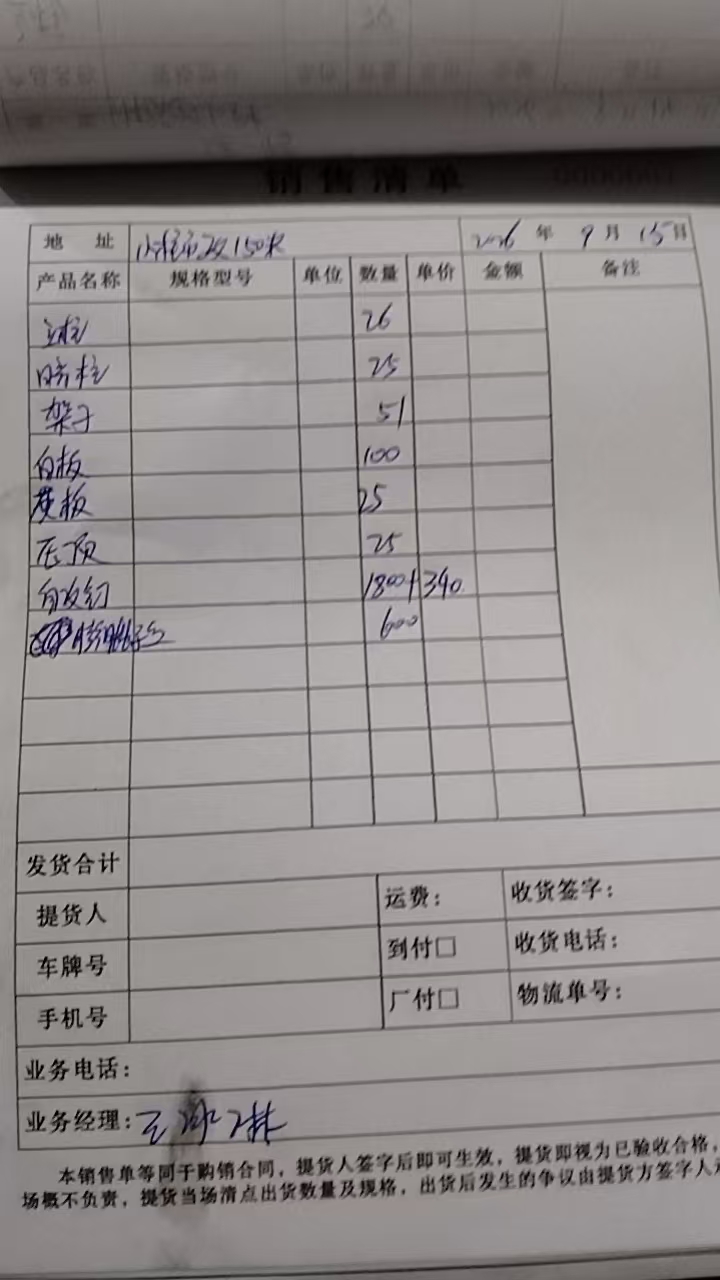 销售清单
地 址 150米 2026 年 9 月 15 日
产品名称 规格型号 单位 数量 单价 金额 备注
立柱 26
柱 25
架子 51
白板 100
板 25
压顶 25
自攻钉 1800+340
600
发货合计
提货人 运费: 收货签字:
车牌号 到付□ 收货电话:
手机号 厂付□ 物流单号:
业务电话:
业务经理: 王
本销售单等同于购销合同，提货人签字后即可生效，提货即视为已验收合格，
场概不负责，提货当场清点出货数量及规格，出货后发生的争议由提货方签字人